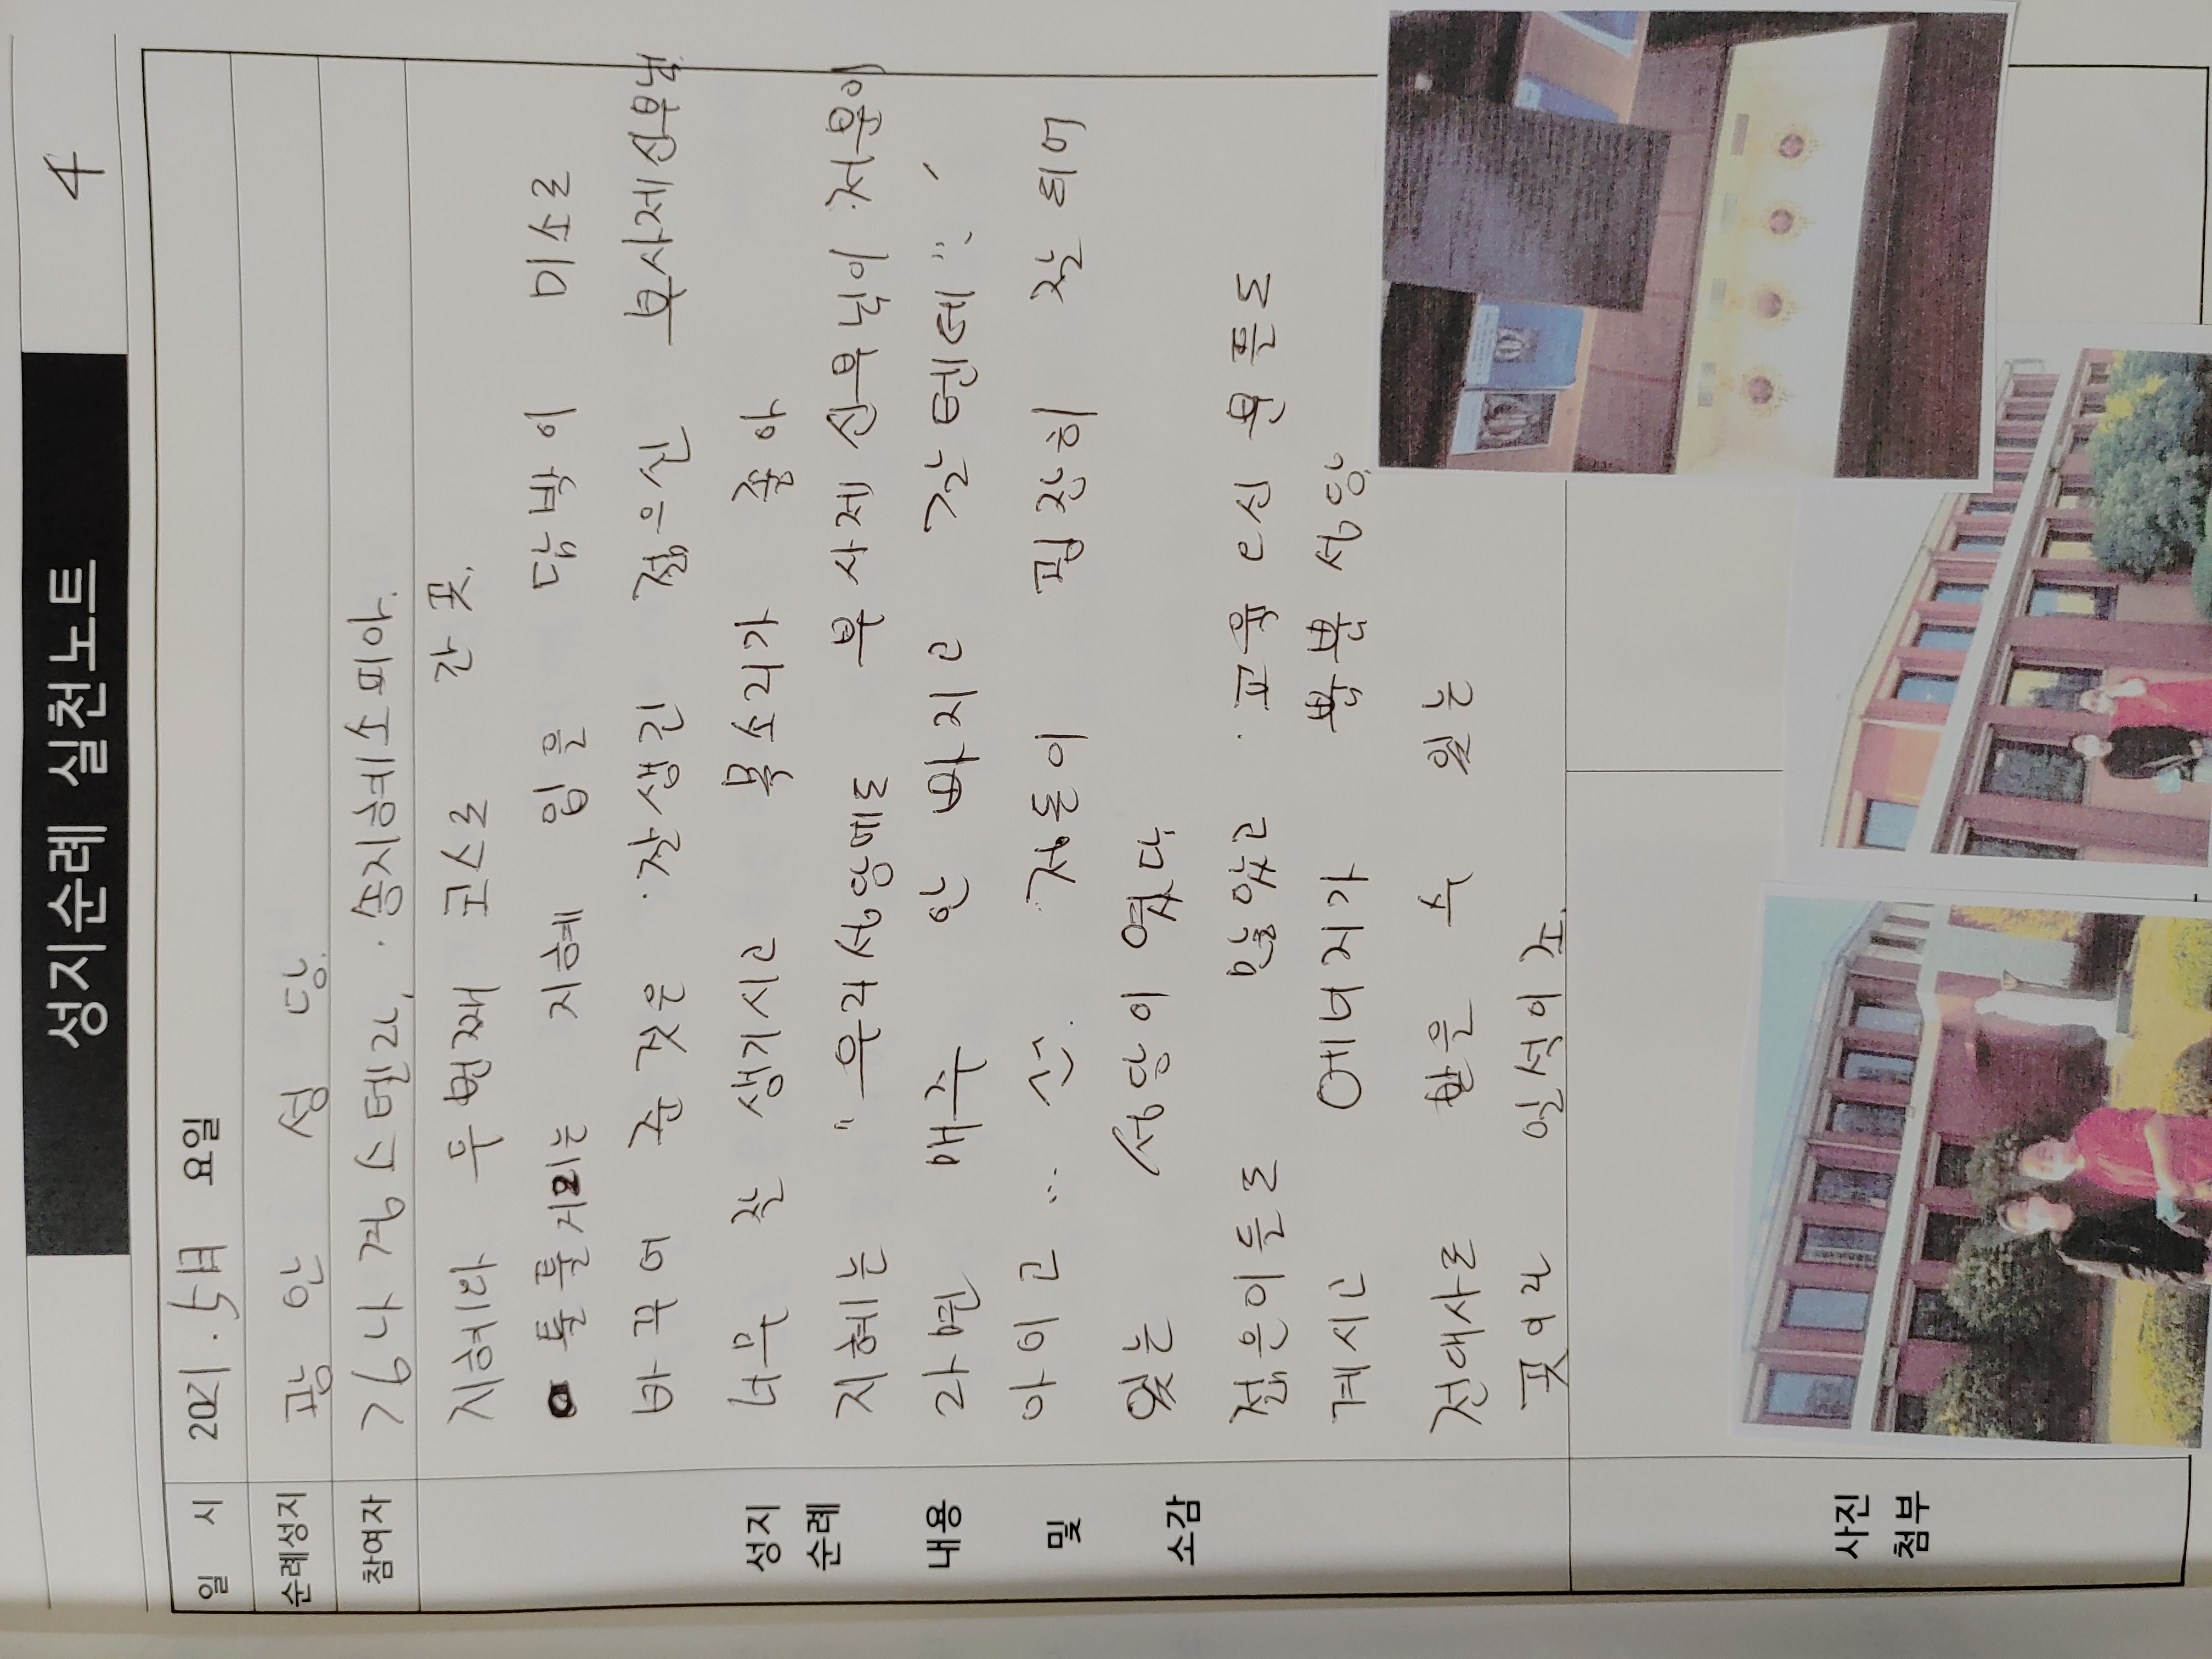 성지순례 실천노트 4
일 시 2021. 5日 요일
순례성지 광안 성당.
참여자 김나경스텔라, 송지혜소피아.
지혜와 두번째 코스로 간 곳.
툴툴거리는 지혜 입을 담박이 미소로
바꾸어 준것은 잘생긴 젊으신 부사제신부님
너무 잘 생기시고 목소리가 좋아
지혜는 "우리성당에도 부사제 신부님이 저분이
라면 매주 안 빠지고 갈텐데"
아이고... 정돈이 굉장히 잘 되어
있는 성당이였다.
젊은이들도 많았고 교육 신 분들도
계시고 에너지가 뿜뿜 성당
전대사도 받을 수 있는
곳이라 일석이조.
성지
순례
내용
및
소감
사진
첨부